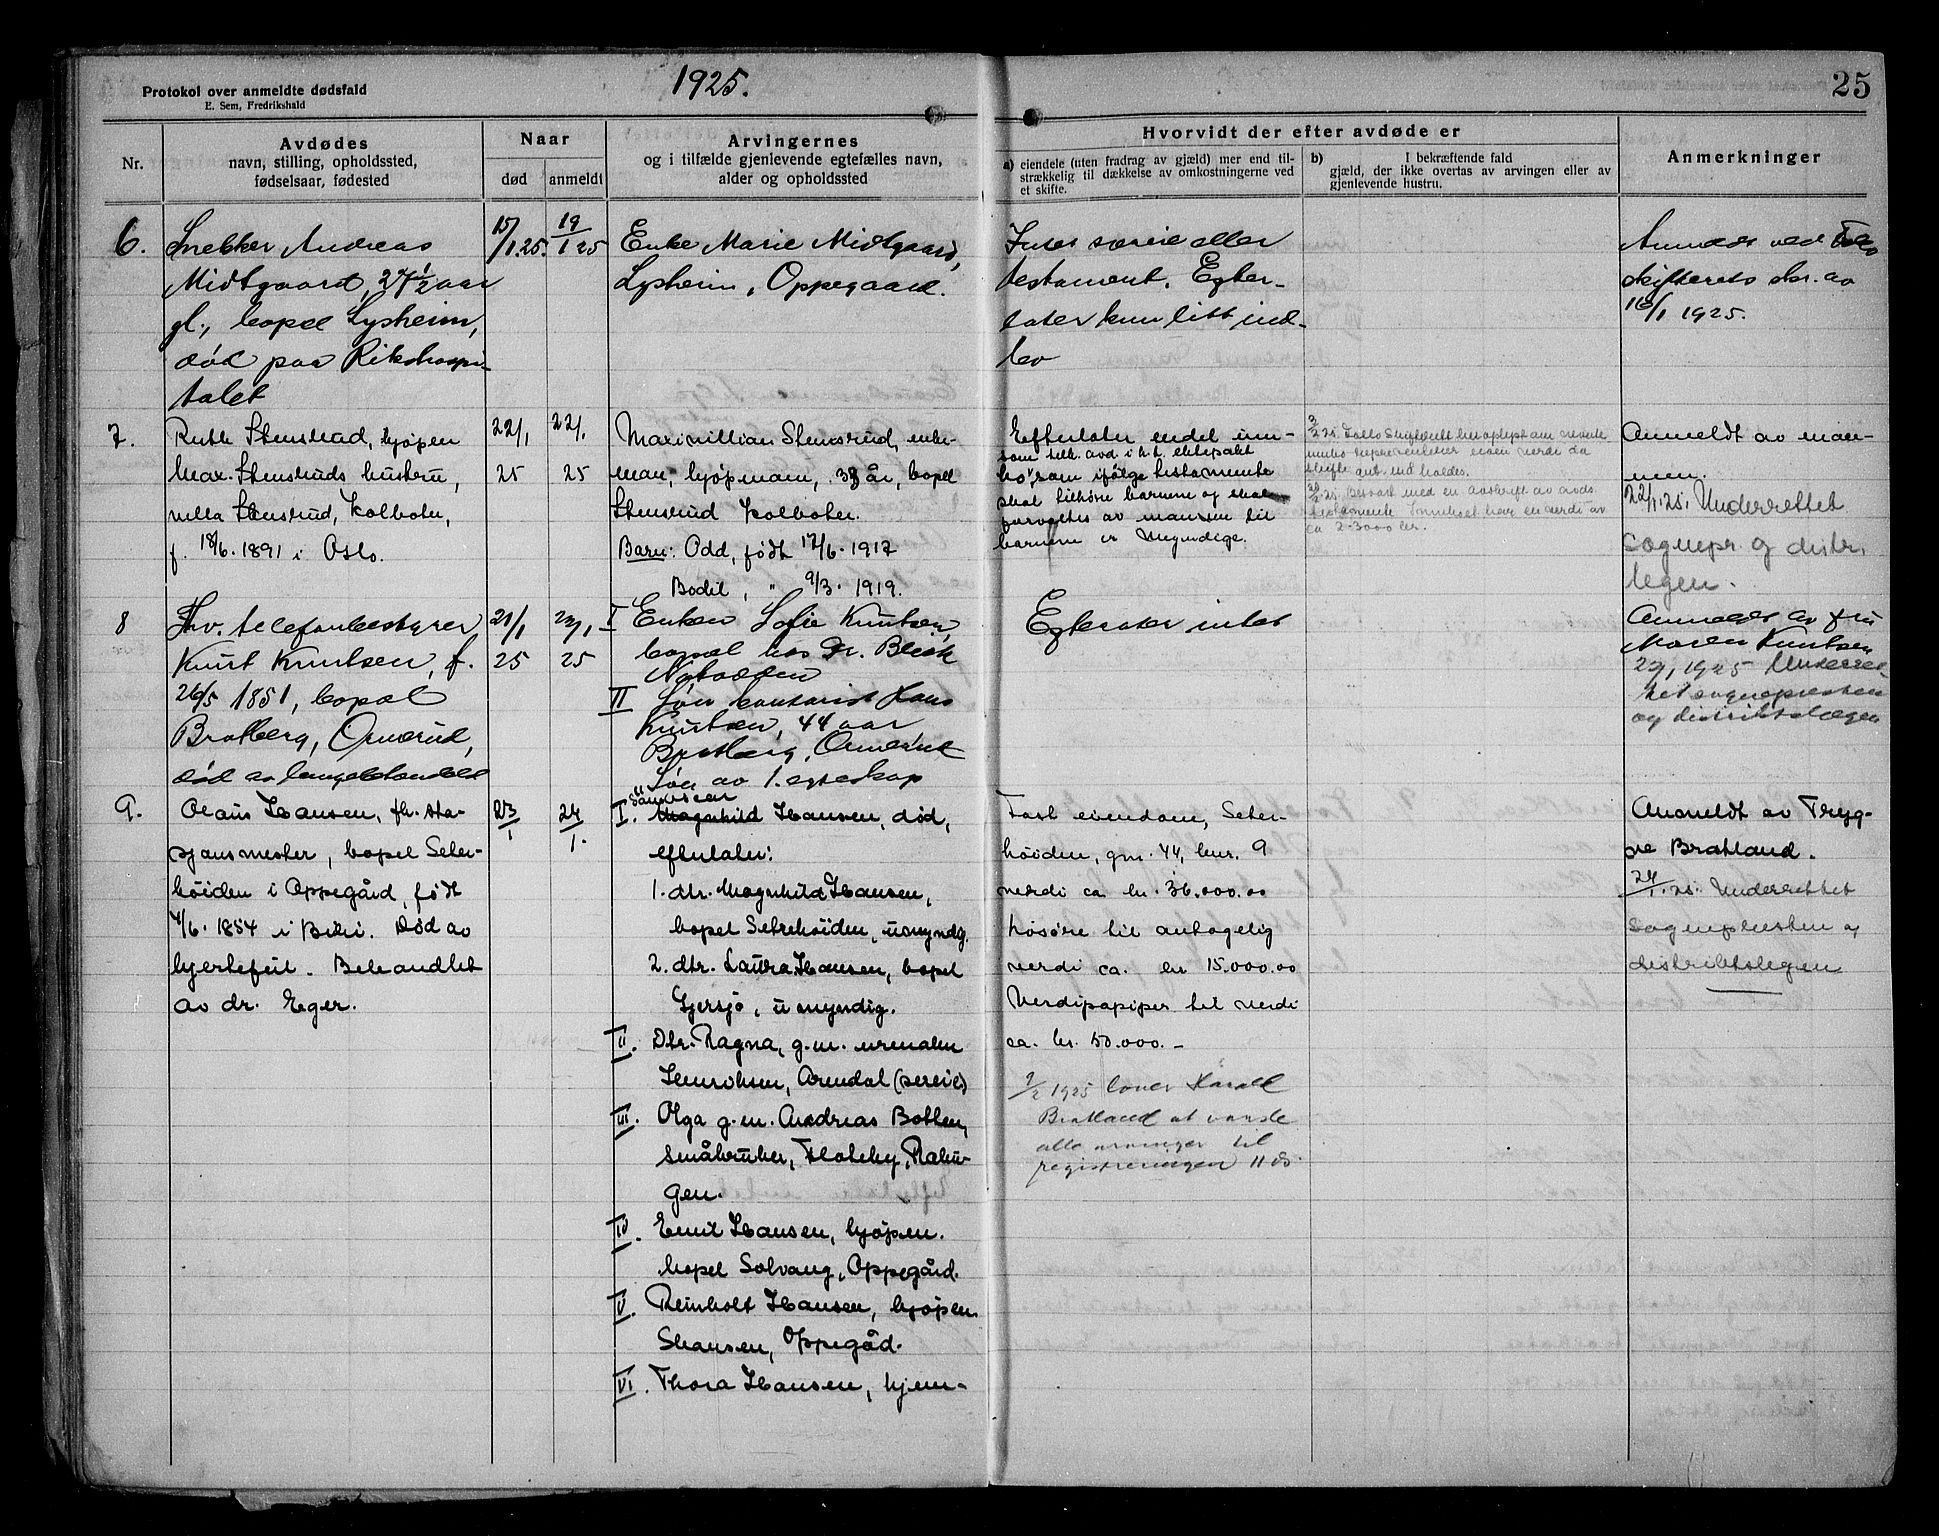 Protokol over anmeldte dødsfald
E. Sem, Fredrikshald
1925.
25
Nr.
Avdødes
navn, stilling, opholdssted,
fødselsaar, fødested
Naar
død
anmeldt
Arvingernes
og i tilfælde gjenlevende egtefælles navn,
alder og opholdssted
Hvorvidt der efter avdøde er
a) eiendele (uten fradrag av gjæld) mer end til-
strækkelig til dækkelse av omkostningerne ved
et skifte.
b) I bekræftende fald
gjæld, der ikke overtas av arvingen eller av
gjenlevende hustru.
Anmerkninger
6.
Snekker Andreas
Midtgaard, 27 1/2 aar
gl., bopel Lysheim,
død paa Rikshospi-
talet
15/1.25.
19/1 25
Enke Marie Midtgaard,
Lysheim, Oppegaard.
Intet særeie eller
testament. Efter-
later kun litt ind-
bo
Anmeldt ved
skifterets skr. av
16/1 1925.
7.
Ruth Stensrud, kjøpm
Max. Stensruds hustru,
villa Stensrud, Kolboten,
f. 18/6. 1891 i Oslo.
22/1
25
22/1
25
Maximillian Stensrud, enke-
man, kjøpmann, 38 år, bopel
Stensrud Kolboten.
Barn: Odd, født 17/6. 1917
Bodil, " 9/3. 1919.
Efterlater endel inn-
bo, som ifølge testamente
skal tilhøre barnene og skal
forvaltes av mannen til
barnene er myndige.
ca 2-3000 kr.
Anmeldt av man-
nen.
22/1.25. Underrettet
sognepr. og distr.
legen.
8
Fhv. telefonbestyrer
Knut Knutsen, f.
26/5 1851, bopal
Bratberg, Ormerud,
død av lungebetændelse
21/1
25
23/1
25
I Enken Sofie Knutsen,
bopæl hos Dr. Blick
Notodden
II Søn kontorist Hans
Knutsen, 44 aar
Bratberg, Ormerud
Søn av 1. egteskap
Efterlater intet
Anmeldt av fru
Maren Knutsen
23/1 1925 Underret-
tet sognepresten
og distriktslægen
9.
Olaus Hansen, fh. sta-
sjonsmester, bopel Seter-
høiden i Oppegård, født
4/6. 1854 i Biri. Død av
hjertefeil. Behandlet
av dr. Eger.
23/1
24/1.
I. Magnhild Hansen, død,
efterlater:
1. dtr. Magnhild Hansen,
bopel Setrehøiden, umyndg.
2. dtr. Laura Hansen, bopel
Gjersjø, umyndig.
II. Dtr. Ragna, g.m. urmaker
Henrichsen, Arendal (særeie)
III. Olga g.m. Andreas Botten,
småbruker, Flateby, Raku-
gen.
IV. Emil Hansen, kjøpm.
bopel Solvang, Oppegård.
V. Reinholt Hansen, kjøpm.
Skansen, Oppegård.
VI. Thora Hansen, hjem-
Fast eiendom, Seter-
høiden, gnr. 44, bnr. 9
verdi ca. kr. 36.000.00
løsøre til antagelig
verdi ca. kr 15.000.00
Verdipapirer til verdi
ca. kr. 50.000.-
9/2 1925 lover Harald
Bratland at varsle
alle arvinger til
registreringen 11 ds.
Anmeldt av Tryg-
ve Bratland.
24/1.25. Underrettet
sognepresten og
distriktslegen